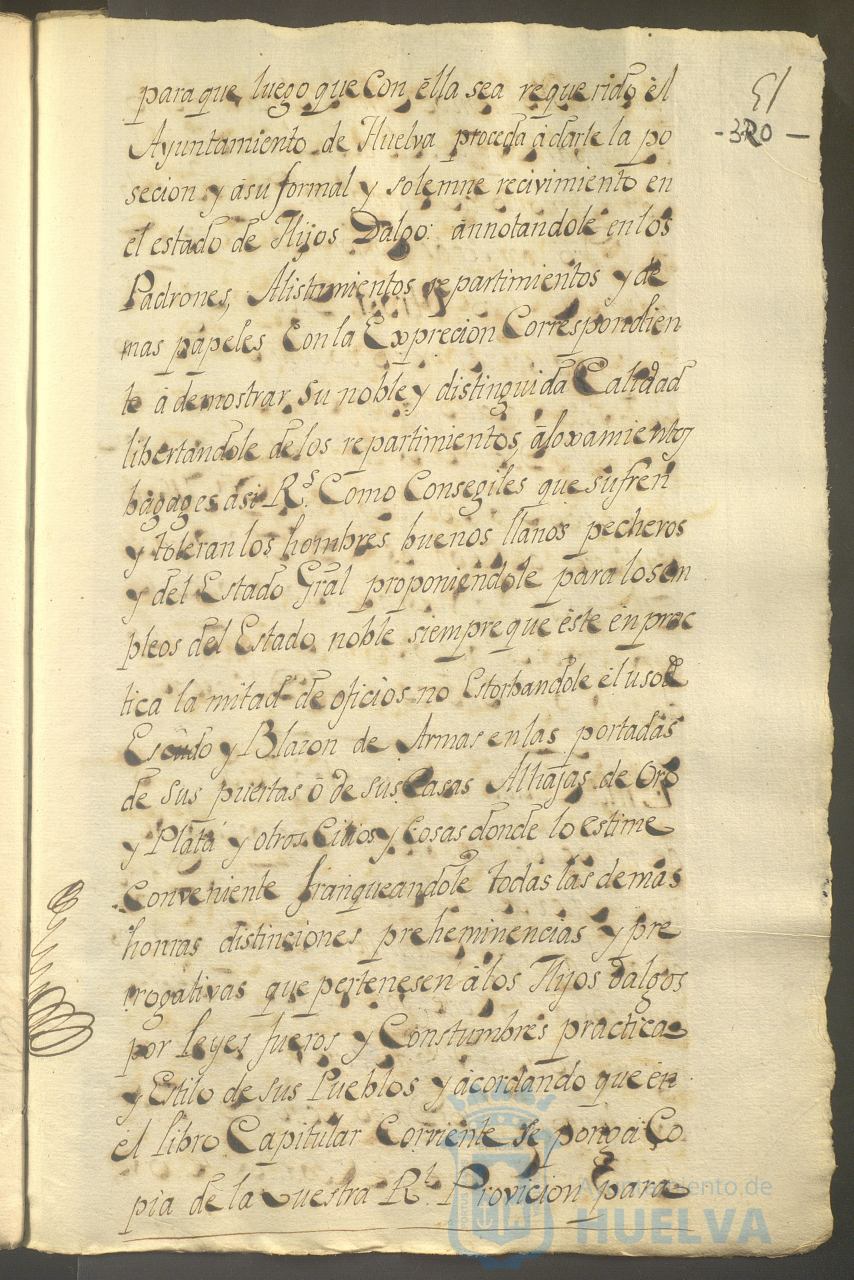 51
-320-
para que, luego que Con ella sea requerido el
Ayuntamiento de Huelva proceda á darle la po
secion y ásu formal y solemne recivimiento en
el estado de Hijos Dalgo: ánnotandole en los
Padrones, Alistamientos repartimientos y de
mas papeles Con la Exprecion Correspondien
te á demostrar su noble y distinguida Calidad
libertandole de los repartimientos, áloxamientos
bagages asi R.s Como Consegiles que sufren
y toleran los hombres buenos llanos pecheros
y del Estado Gral proponiendole para los em
pleos del Estado noble siempre que éste én prac
tica la mitad de oficios no Estorbandole el uso de
Escudo y Blazon de Armas en las portadas
de sus puertas ó de sus Casas Alhajas de Oro
y Plata y otros Citios y Cosas donde lo estime
Conveniente franqueandole todas las demas
honras distinciones preheminencias y pre
rrogativas que pertenesen álos Hijos dalgos
por leyes fueros y Constumbres practicas
y Estilo de sus Pueblos y ácordando que én
él libro Capitular Corriente se ponga Co
pia de la Vuestra R.l Provicion para
Ayuntamiento de
HUELVA